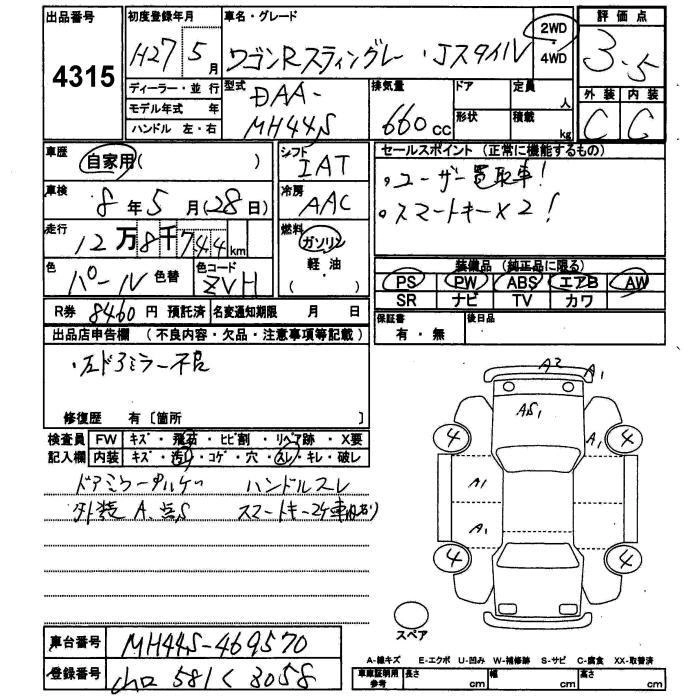 出品番号 初度登録年月 車名・グレード 2WD 評価点
4315 H27 5月 ワゴンRスティングレー・Jスタイル 4WD 3.5
ディーラー・並行 型式 排気量 ドア 定員 人 外装 内装
モデル年式 年 DAA- 660cc 形状 積載 kg C C
ハンドル 左・右 MH44S
車歴 自家用( ) シフト IAT セールスポイント (正常に機能するもの)
車検 8年5月(28日) 冷房 AAC ・ユーザー買取車!
・スマートキー×2!
走行 12万8千744km 燃料 ガソリン 軽・油 ( )
装備品 (純正品に限る)
色 パール 色替 色コード ZVH PS PW ABS エアB AW
SR ナビ TV カワ
R券 8460円 預託済 名変通知期限 月 日 保証書 有・無 後日品
出品店申告欄 (不良内容・欠品・注意事項等記載)
・左ドアミラー不良
修復歴 有〔箇所 〕
検査員 FW キズ・飛石・ヒビ割・リペア跡・X要
記入欄 内装 キズ・汚れ・コゲ・穴・スレ・キレ・破レ
ハンドルスレ
外装 A、点S スマートキー2ケ車内あり
A2 A1
AS1
4 A1 4
A1
A1
4 4
スペア
車台番号 MH44S-469570
登録番号 581 く 3058
A-線キズ E-エクボ U-凹み W-補修跡 S-サビ C-腐食 XX-取替済
車庫証明用参考 長さ cm 幅 cm 高さ cm